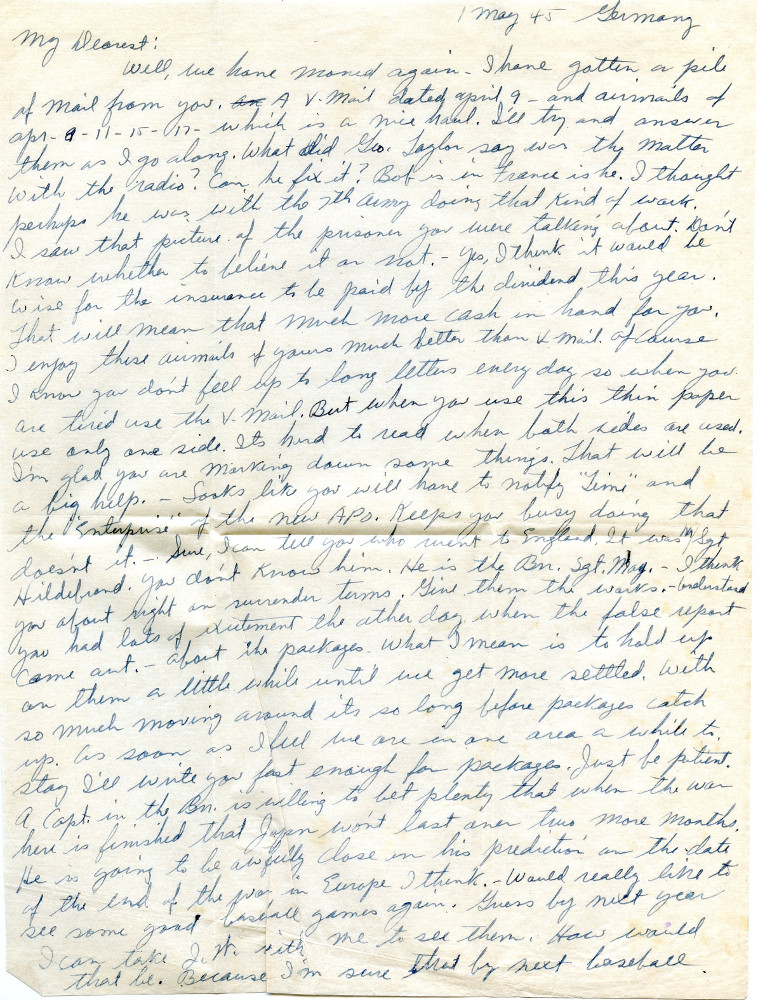 1 May 45 Germany
My Dearest:
Well, we have moved again - I have gotten a pile
of mail from you. A V-Mail dated april 9 - and airmails of
apr - 9 - 11 - 15 - 17 - which is a nice haul. I'll try and answer
them as I go along. What did Geo. Taylor say was the matter
with the radio? Can he fix it? Bob is in France is he. I thought
perhaps he was with the 7th Army doing that kind of work.
I saw that picture of the prisoner you were talking about. Don't
know whether to believe it or not. - yes, I think it would be
wise for the insurance to be paid by the dividend this year.
That will mean that much more cash in hand for you.
I enjoy these airmails of yours much better than V mail. Of course
I know you don't feel up to long letters every day so when you
are tired use the V-Mail. But when you use this thin paper
use only one side. Its hard to read when both sides are used.
I'm glad you are marking down some things. That will be
a big help. - Looks like you will have to notify "Time" and
the "Enterprise" of the new APO. Keeps you busy doing that
doesn't it. - Sure, I can tell you who went to England. It was M/Sgt
Hildebrand. You don't know him. He is the Bn. Sgt. Maj. - I think
you about right on surrender terms. Give them the works. - Understand
you had lots of exitement the other day when the false report
came out. - About the packages. What I mean is to hold up
on them a little while until we get more settled. With
so much moving around its so long before packages catch
up. As soon as I feel we are in one area a while to
stay I'll write you fast enough for packages. Just be patient.
A Capt. in the Bn. is willing to bet plenty that when the war
here is finished that Japan won't last over two more months.
He is going to be awfully close in his prediction on the date
of the end of the war in Europe I think. - Would really like to
see some good baseball games again. Guess by next year
I can take J.W. with me to see them. How would
that be. Because I'm sure that by next baseball